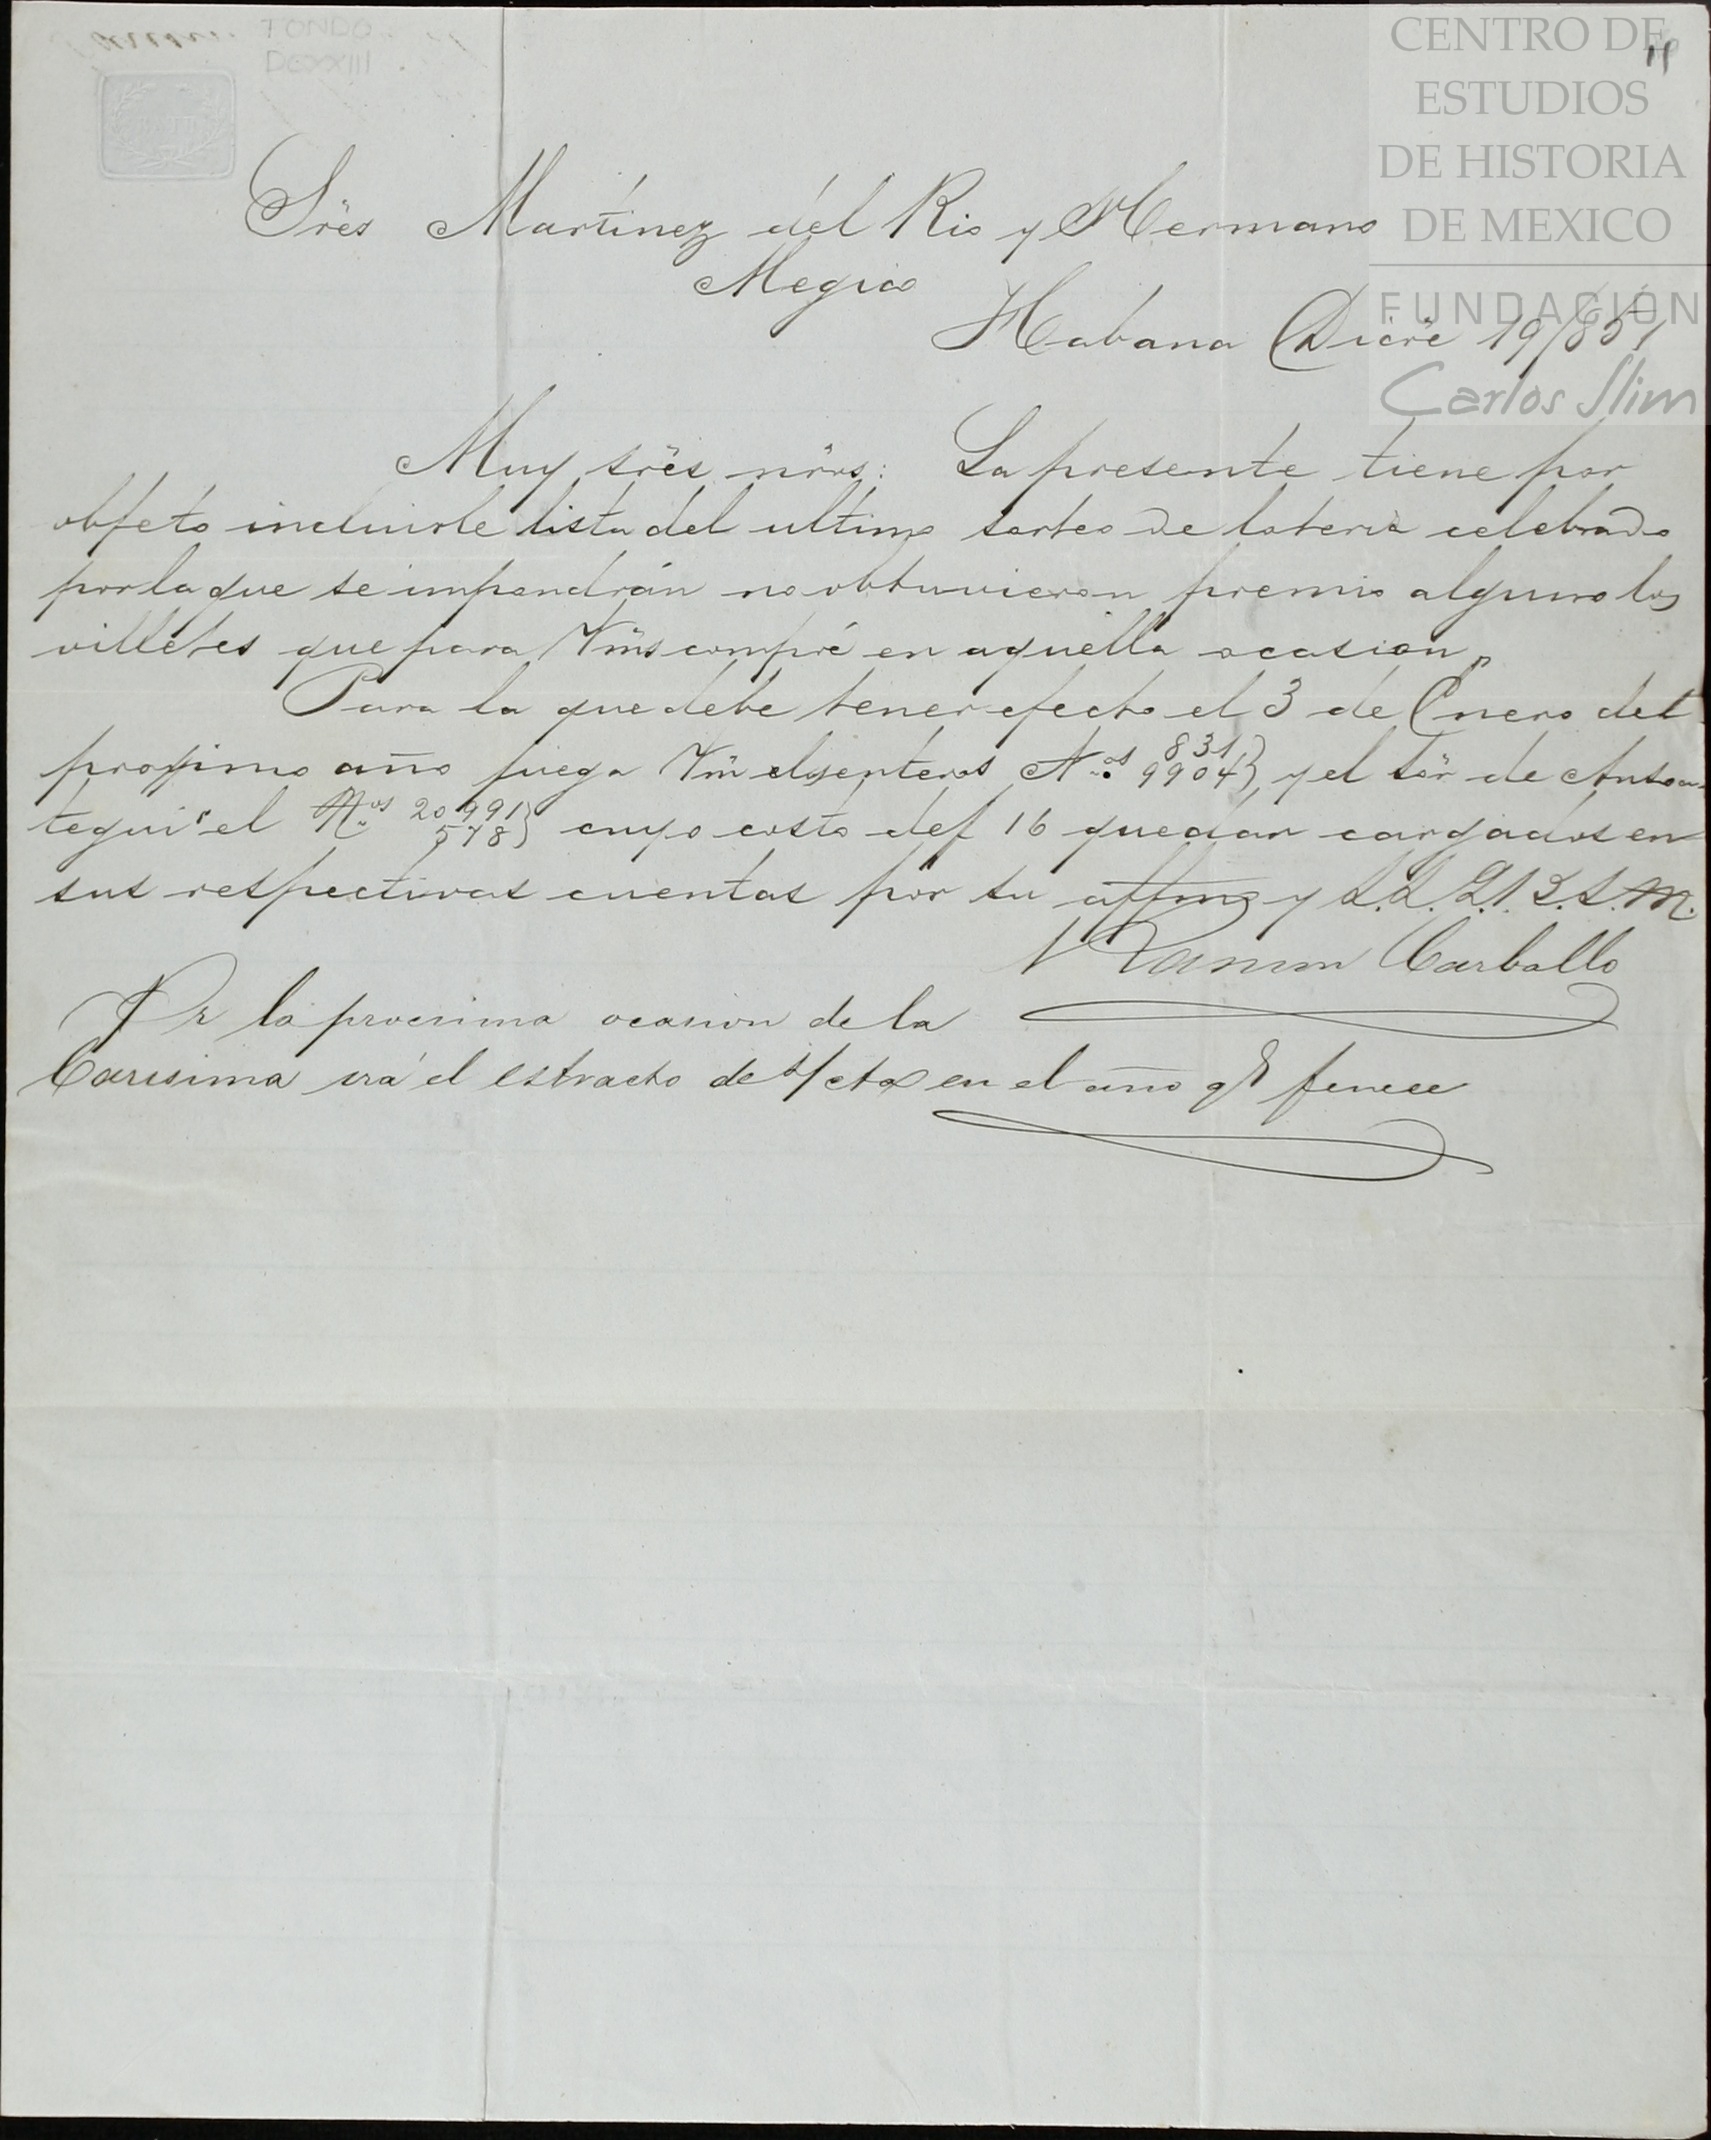 FONDO
DCXXIII
11
CENTRO DE
ESTUDIOS
DE HISTORIA
DE MEXICO
FUNDACIÓN
Carlos Slim
Srës Martínez del Rio y Hermano
Megico
Habana Dicrë 19/851
Muy srës nrös: La presente tiene por
objeto incluirle lista del ultimo sorteo de loteria celebrado
por la que se impondrán no obtuvieron premio alguno los
villetes que para Vms compré en aquella ocasion,,
Para la que debe tener efecto el 3 de Enero del
proximo año juega Vm enteros Nos 831 9904} y el Sör de Ansoa-
tegui el Nos 20991 578} cuyo costo de 16 quedan cargados en
sus respectivas cuentas por su affmo y S.S. Q.B.S.M.
Ramon Carballo
Pr la procsima ocasion de la
Carisima irá el estracto de s/cta en el año qe fenece